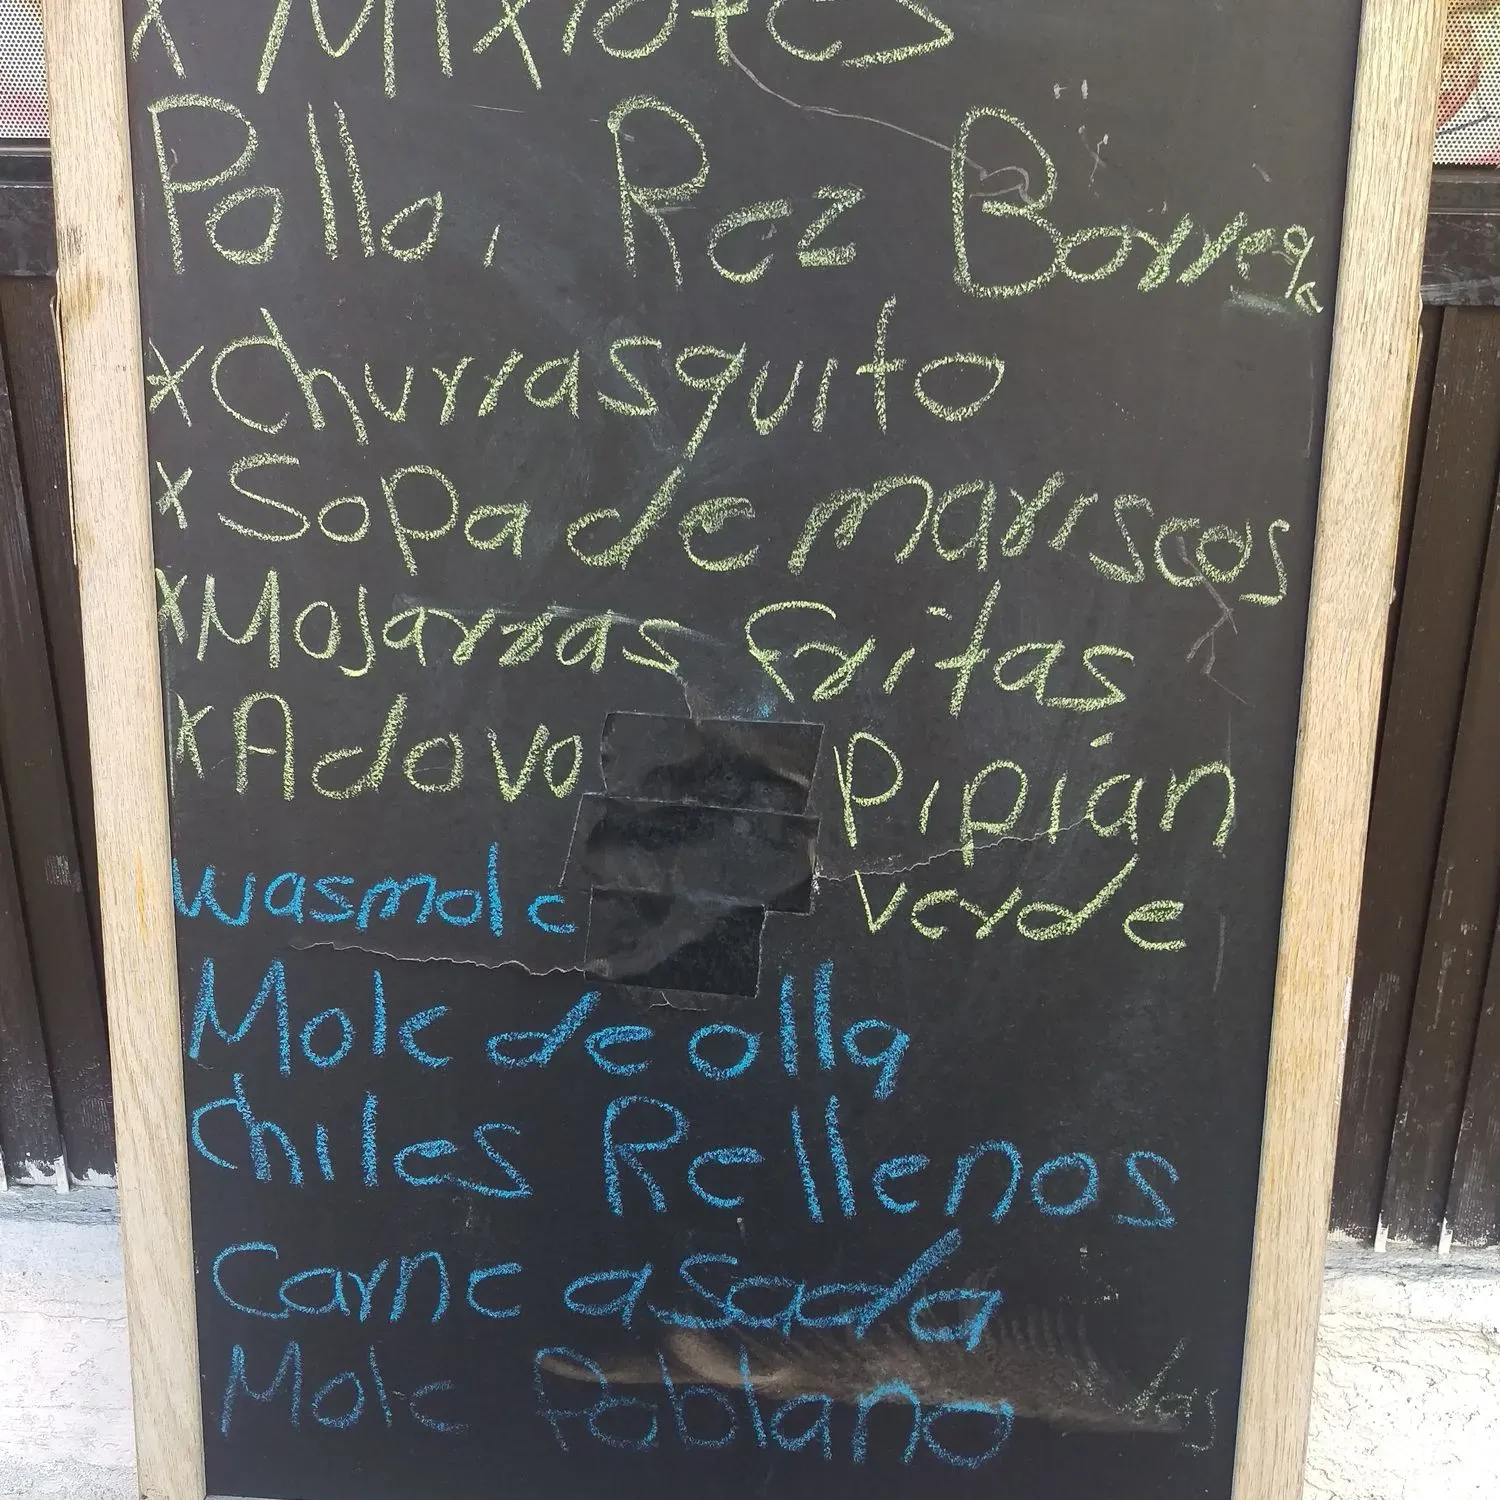 x Mixiotes
Pollo, Rez Borrega
x Churrasquito
x Sopa de mariscos
x Mojarras fritas
x Adovo Pipián
verde
wasmole
Mole de olla
Chiles Rellenos
Carne asada
Mole Poblano